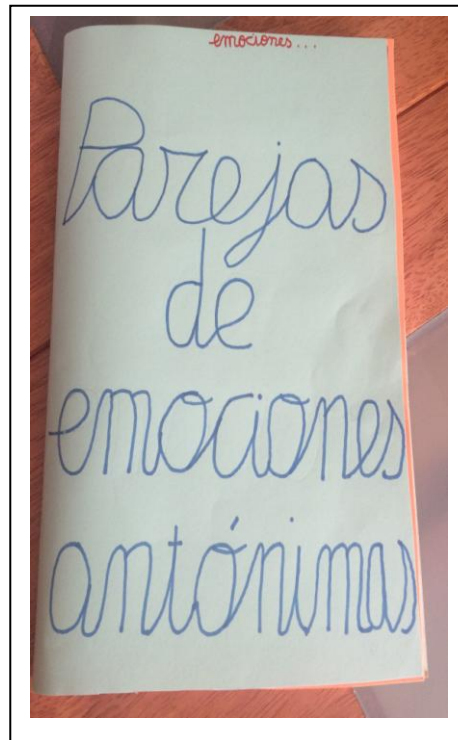 emociones...
Parejas
de
emociones
antónimas